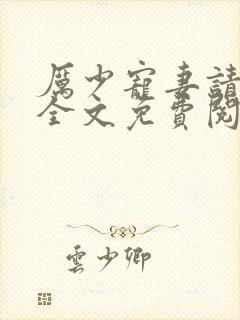 厲少寵妻請
全文免費閱
雲少卿